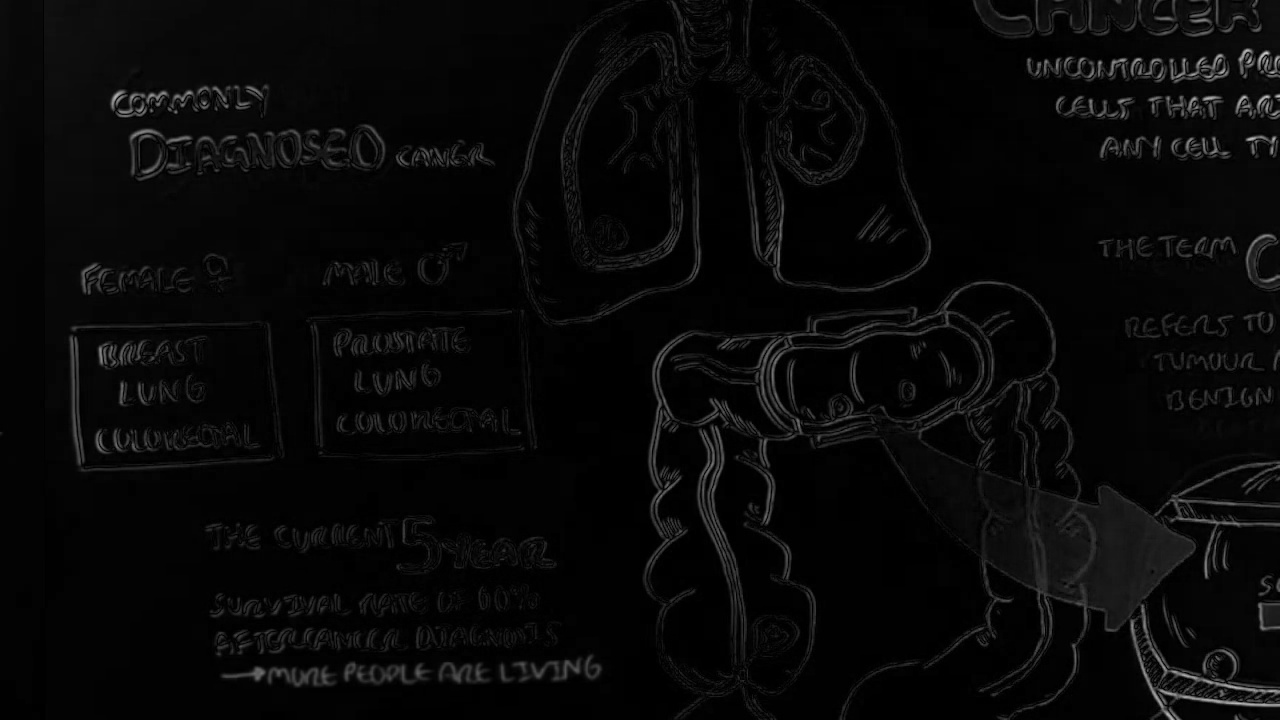 COMMONLY
DIAGNOSED CANCER
FEMALE ♀
MALE ♂
BREAST
LUNG
COLORECTAL
PROSTATE
LUNG
COLORECTAL
THE CURRENT 5 YEAR
SURVIVAL RATE IS 60%
AFTER CANCER DIAGNOSIS
→ MORE PEOPLE ARE LIVING
CANCER
UNCONTROLLED PR
CELLS THAT AR
ANY CELL TY
THE TERM C
REFERS TO
TUMOUR
BENIGN